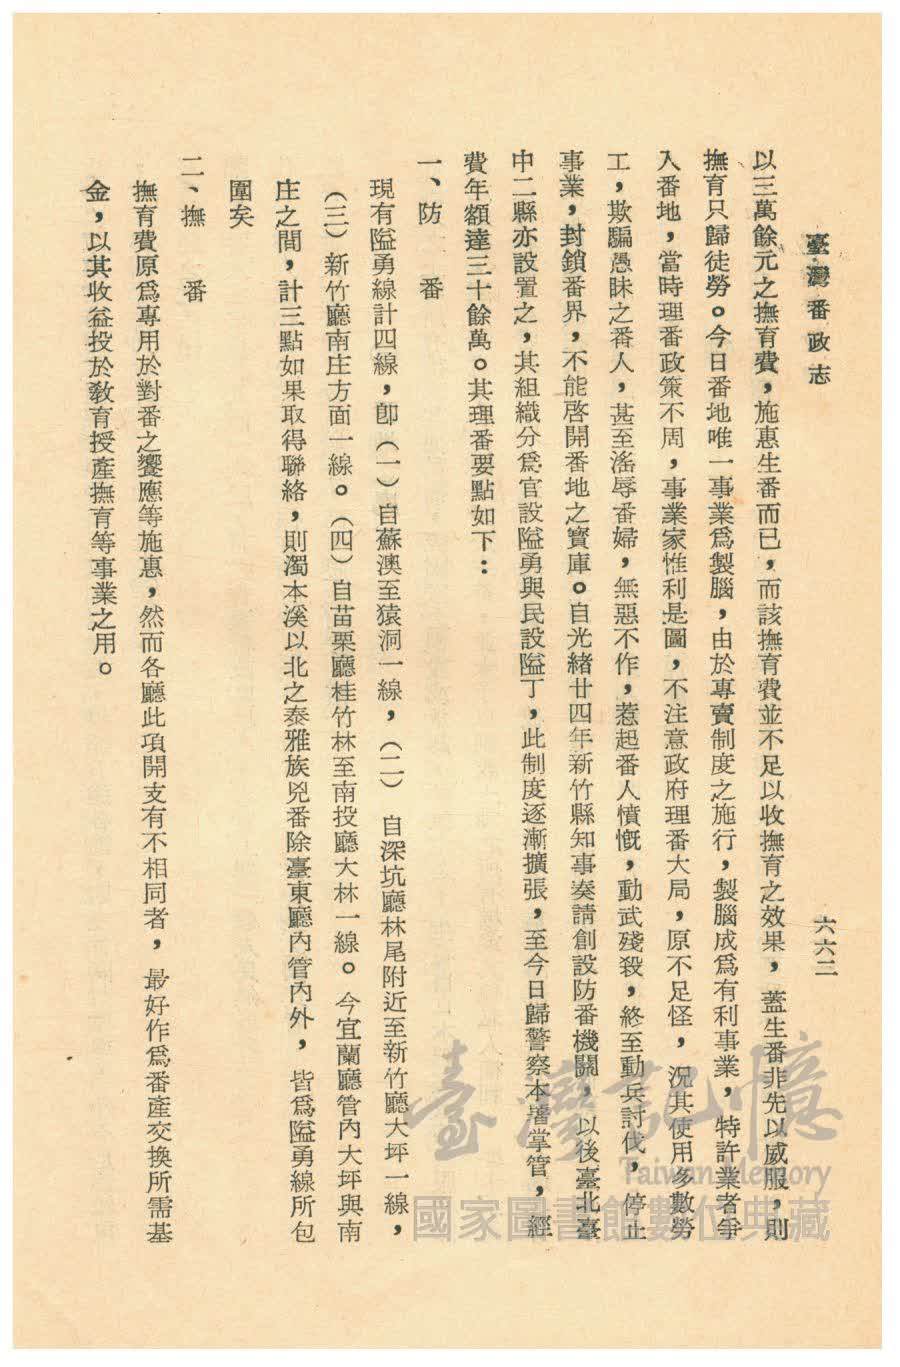 臺灣番政志
六六二
以三萬餘元之撫育費，施惠生番而已，而該撫育費並不足以收撫育之效果，蓋生番非先以威服，則
撫育只歸徒勞。今日番地唯一事業爲製腦，由於專賣制度之施行，製腦成爲有利事業，特許業者爭
入番地，當時理番政策不周，事業家惟利是圖，不注意政府理番大局，原不足怪，況其使用多數勞
工，欺騙愚昧之番人，甚至滛辱番婦，無惡不作，惹起番人憤慨，動武殘殺，終至動兵討伐，停止
事業，封鎖番界，不能啓開番地之寶庫。自光緖廿四年新竹縣知事奏請創設防番機關，以後臺北臺
中二縣亦設置之，其組織分爲官設隘勇與民設隘丁，此制度逐漸擴張，至今日歸警察本署掌管，經
費年額達三十餘萬。其理番要點如下：
一、防　番
現有隘勇線計四線，卽（一）自蘇澳至猿洞一線，（二）自深坑廳林尾附近至新竹廳大坪一線，
（三）新竹廳南庄方面一線。（四）自苗栗廳桂竹林至南投廳大林一線。今宜蘭廳管內大坪與南
庄之間，計三點如果取得聯絡，則濁本溪以北之泰雅族兇番除臺東廳內管內外，皆爲隘勇線所包
圍矣
二、撫　番
撫育費原爲專用於對番之饗應等施惠，然而各廳此項開支有不相同者，最好作爲番產交換所需基
金，以其收益投於敎育授產撫育等事業之用。
臺灣記憶
Taiwan Memory
國家圖書館數位典藏